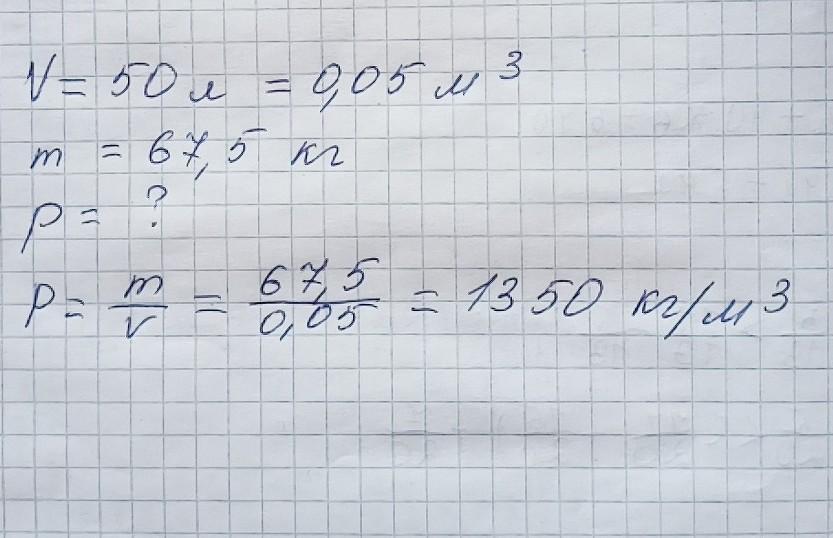 V = 50 л = 0,05 м³
m = 67,5 кг
ρ = ?
ρ = m/v = 67,5/0,05 = 1350 кг/м³